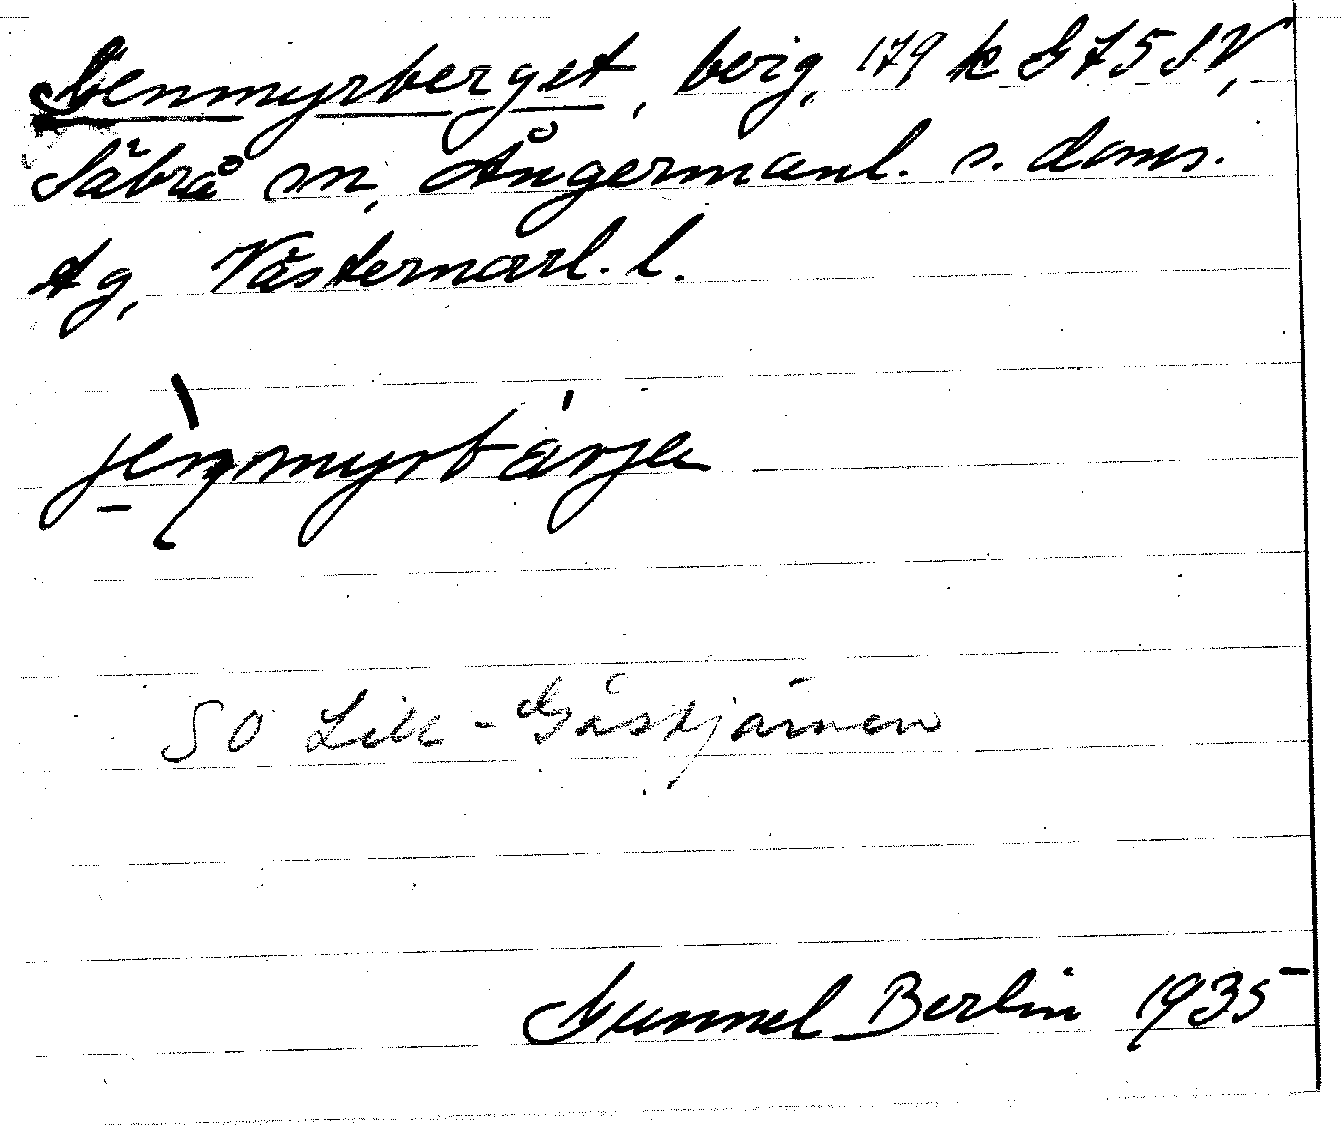 Genmyrberget, berg, 179 k G75 SV,
Säbrå sn, Ångermanl. s. doms.
Ag, Västernorrl. l.
jènmyrbárja
SO Lill-Gåstjärnen
Gunnel Berlin 1935